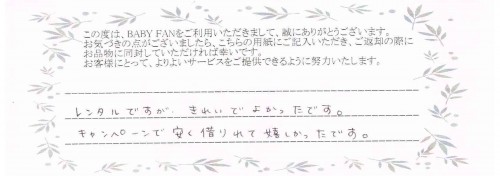 この度は、BABY FANをご利用いただきまして、誠にありがとうございます。
お気づきの点がございましたら、こちらの用紙にご記入いただき、ご返却の際に
お品物に同封していただければ幸いです。
お客様にとって、よりよいサービスをご提供できるように努力いたします。
レンタルですが、きれいでよかったです。
キャンペーンで安く借りれて嬉しかったです。